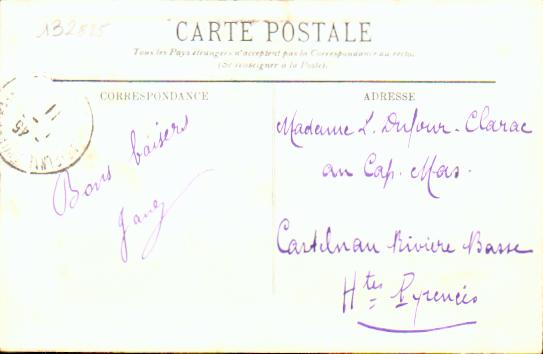 132525
CARTE POSTALE
Tous les Pays étrangers n'acceptent pas la Correspondance au recto.
(Se renseigner à la Poste).
CORRESPONDANCE
ADRESSE
Bons baisers
Madame L. Dufour-Clarac
au Cap. Mas.
Castelnau Rivière Basse
Htes Pyrenées